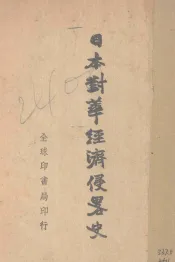 日本對華經濟侵畧史
全球印書局印行